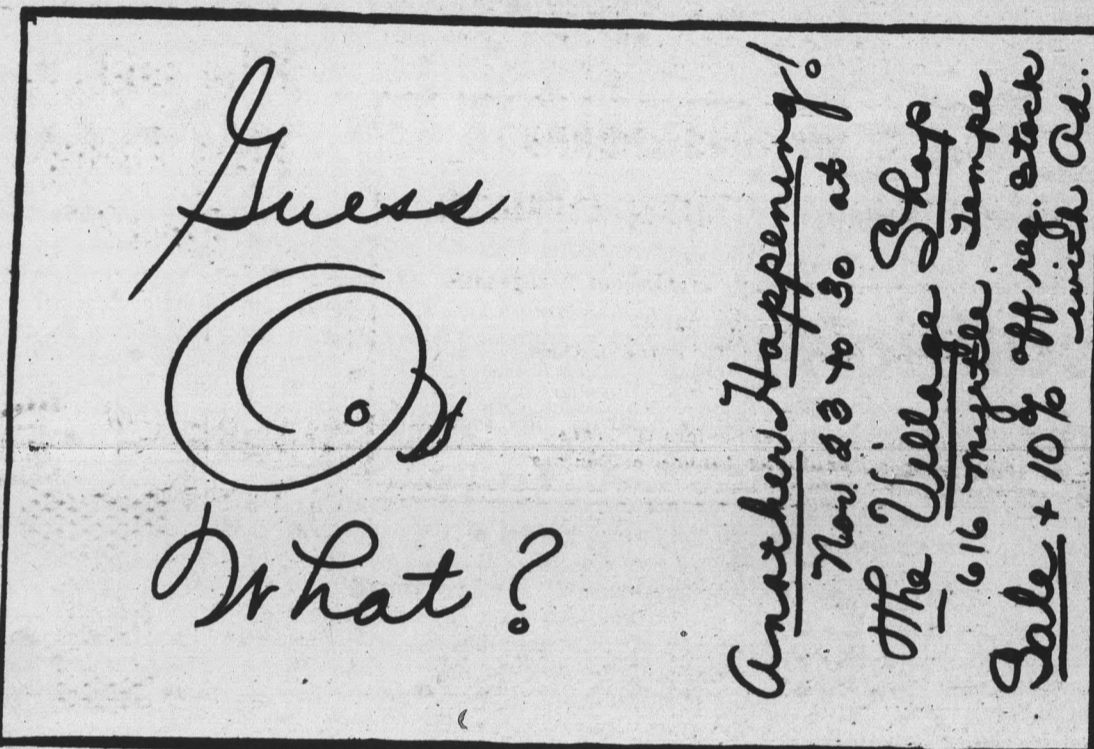 Guess
What?
Another Happening!
Nov. 23 to 30 at
The Village Shop
616 Myrtle. Tempe
Sale + 10% off reg. stock
with ad.